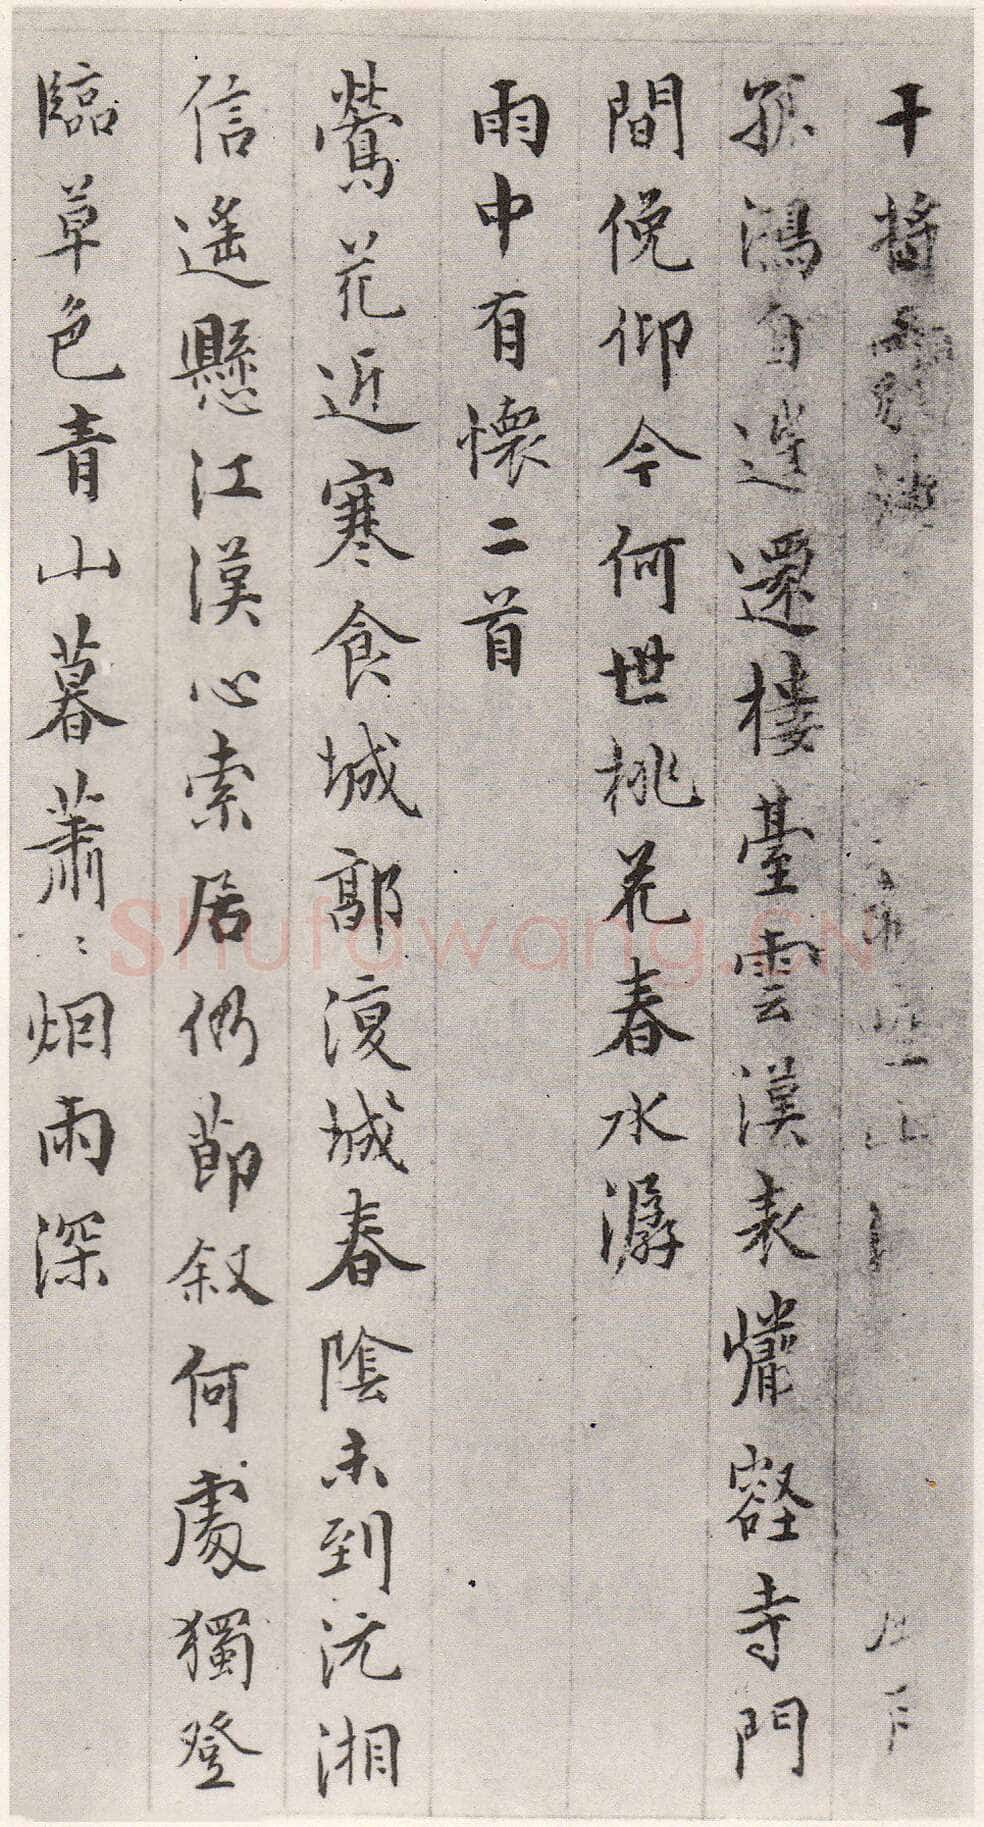 干將
孤鴻自逆還樓臺雲漢表灌壑寺門
間俛仰今何世桃花春水潺
雨中有懷二首
鶯花近寒食城郭復城春陰未到沅湘
信遙懸江漢心索居仍節叙何處獨登
臨草色青山暮蕭〻烟雨深
Shufawang.CN